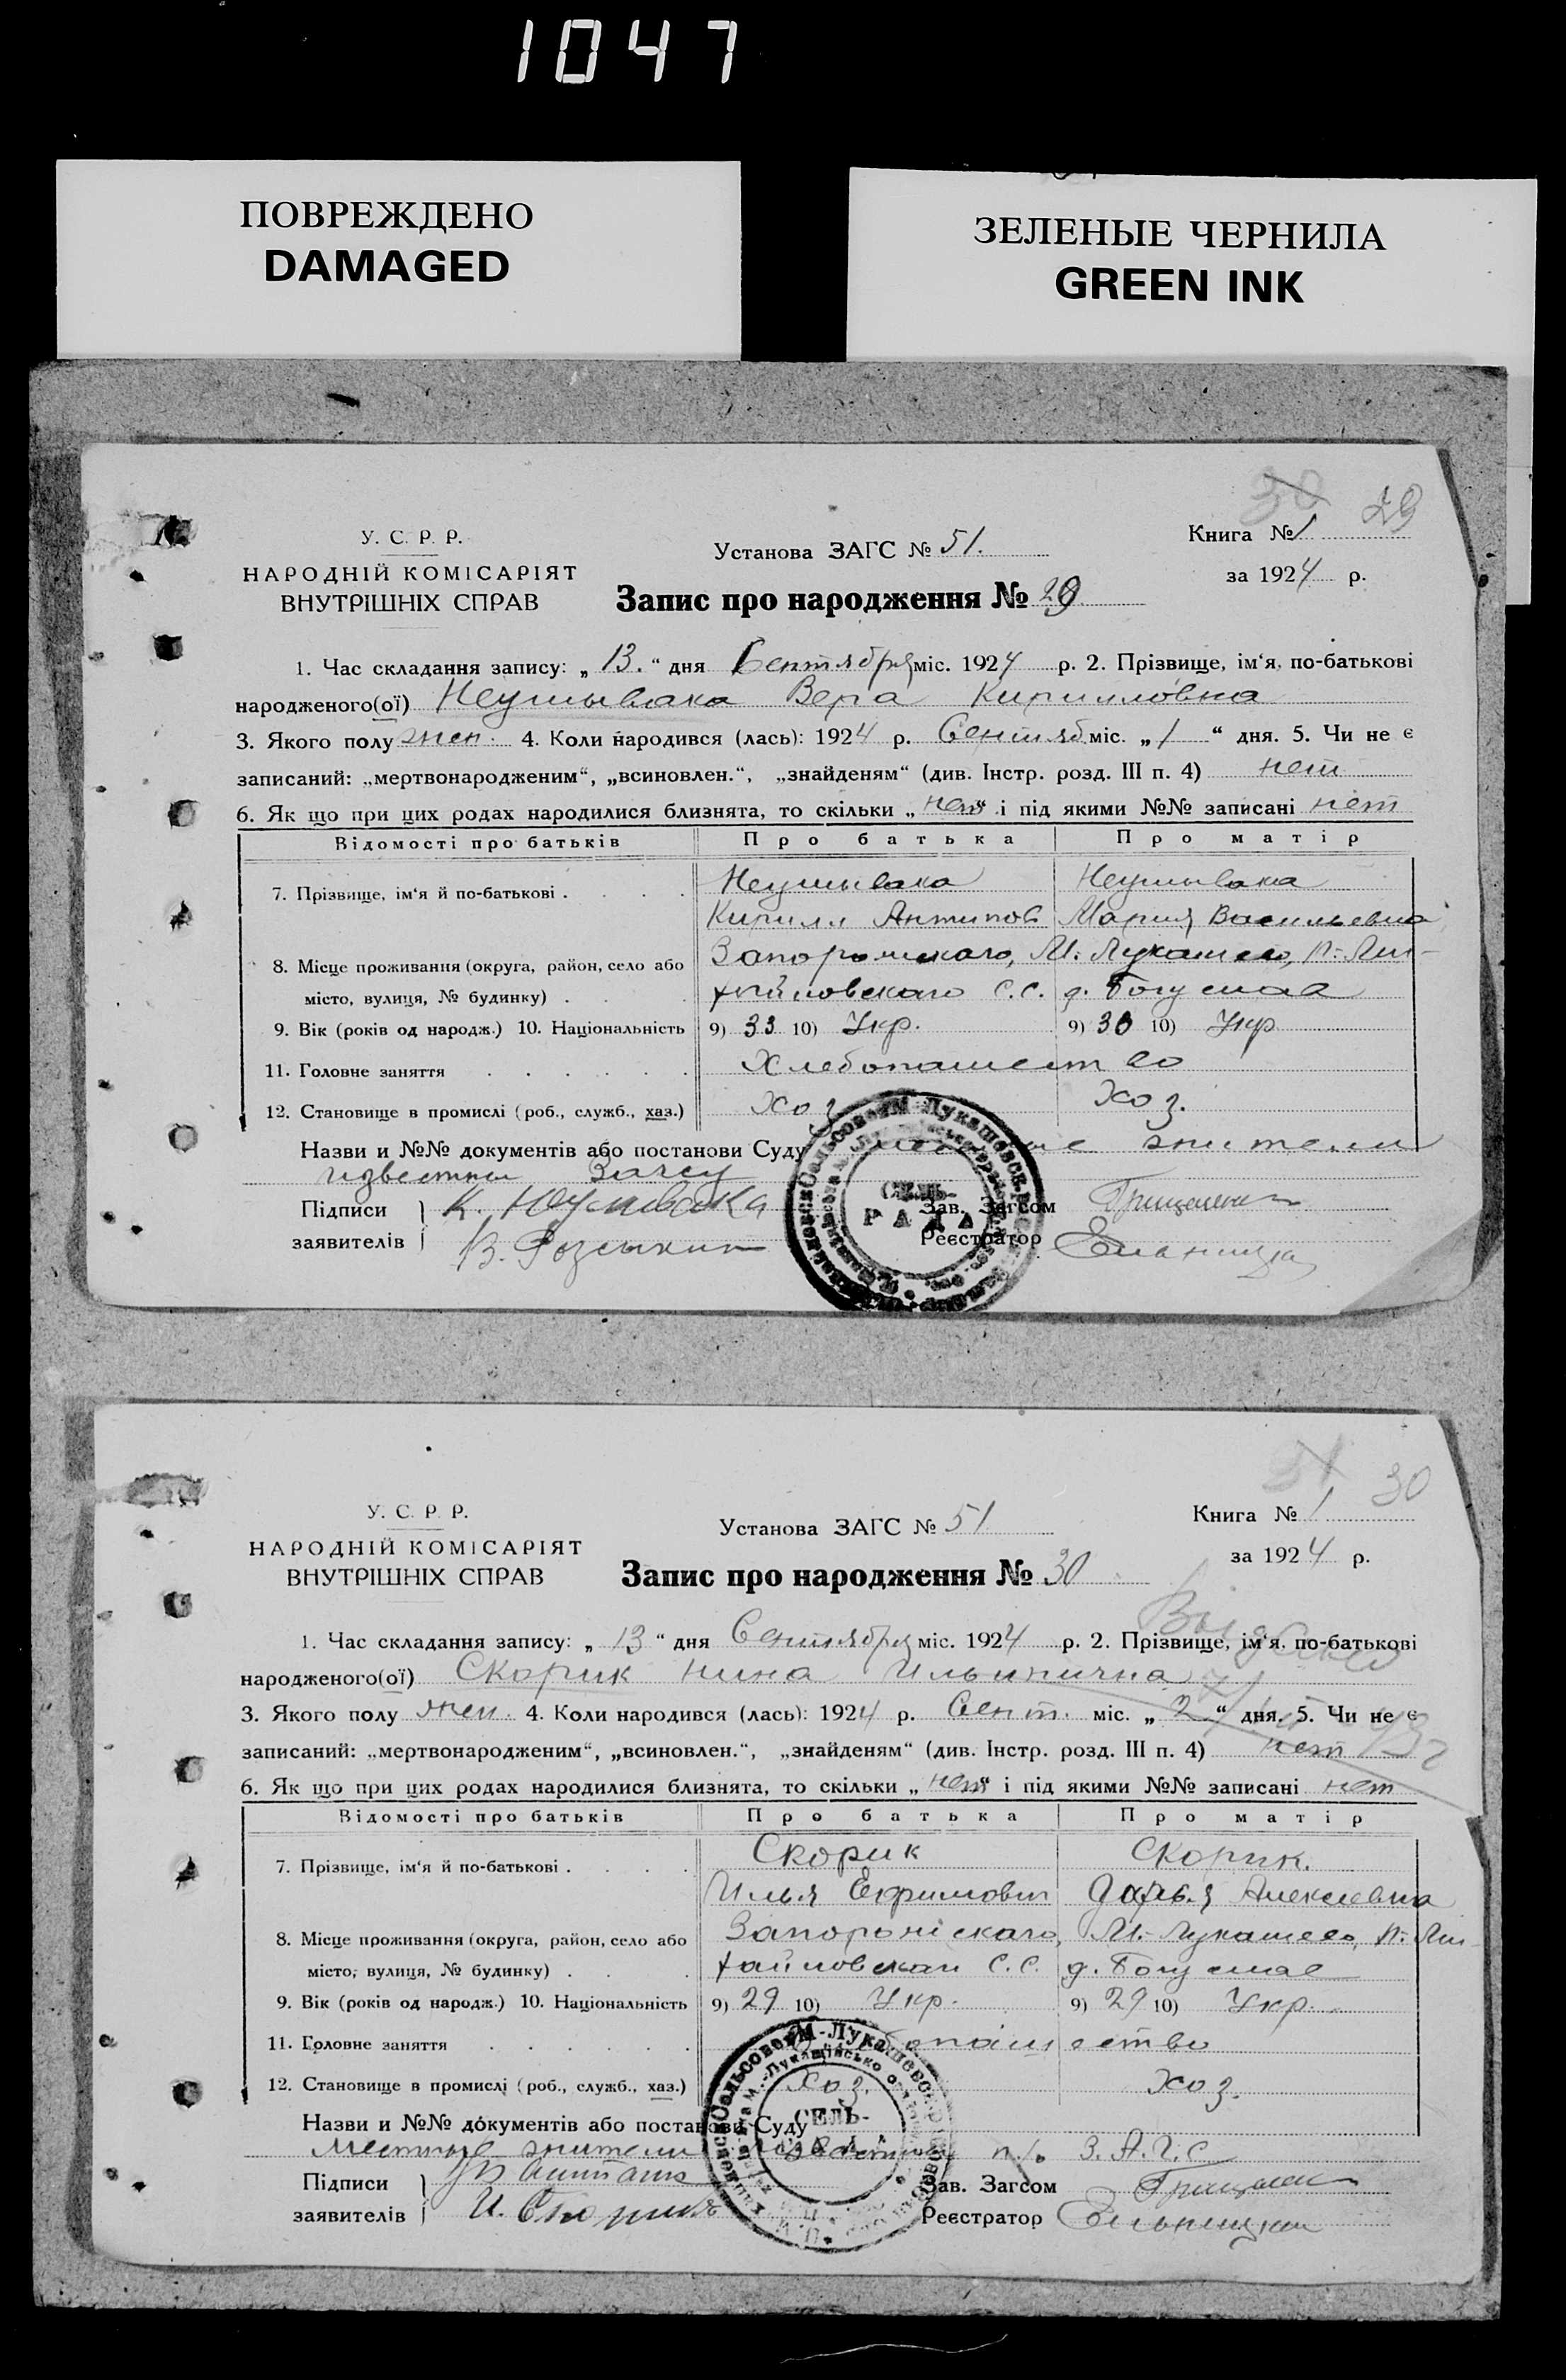 1047
ПОВРЕЖДЕНО
DAMAGED
ЗЕЛЕНЫЕ ЧЕРНИЛА
GREEN INK
30 29
У. С. Р. Р.
НАРОДНІЙ КОМІСАРІЯТ
ВНУТРІШНІХ СПРАВ
Установа ЗАГС № 51.
Запис про народження № 29
Книга № 1
за 1924 р.
1. Час складання запису: „ 13. “ дня Сентября міс. 1924 р. 2. Прізвище, ім‘я, по-батькові
народженого(ої) Неумывака Вера Кирилловна
3. Якого полу жен. 4. Коли народився (лась): 1924 р. Сентяб міс. „ 1 “ дня. 5. Чи не є
записаний: „мертвонародженим“, „всиновлен.“, „знайденям“ (див. Інстр. розд. III п. 4) нет
6. Як що при цих родах народилися близнята, то скільки „ нет “ і під якими №№ записані нет
Відомості про батьків Про батька Про матір
7. Прізвище, ім‘я й по-батькові . . . . Неумывака Неумывака
Кирилл Антипов Мария Васильевна
8. Місце проживання (округа, район, село або Запорожскаго, М. Лукашево,
місто, вулиця, № будинку) . . С.С. д. Богуслав
9. Вік (років од народж.) 10. Національність 9) 33 10) Укр. 9) 30 10) Укр
11. Головне заняття . . . . . . Хлебопашество
12. Становище в промислі (роб., служб., хаз.) Хоз Хоз.
Назви и №№ документів або постанови Суду жители
известны Загсу
Підписи К. Неумивака Зав. Загсом
заявителів В. Реєстратор
СЕЛЬ-
РАДА
31 30
У. С. Р. Р.
НАРОДНІЙ КОМІСАРІЯТ
ВНУТРІШНІХ СПРАВ
Установа ЗАГС № 51
Запис про народження № 30
Книга № 1
за 1924 р.
1. Час складання запису: „ 13 “ дня Сентября міс. 1924 р. 2. Прізвище, ім‘я, по-батькові
народженого(ої) Скорик Нина Ильинична
3. Якого полу жен. 4. Коли народився (лась): 1924 р. Сент. міс. „ 2 “ дня. 5. Чи не є
записаний: „мертвонародженим“, „всиновлен.“, „знайденям“ (див. Інстр. розд. III п. 4) нет
6. Як що при цих родах народилися близнята, то скільки „ нет “ і під якими №№ записані нет
Відомості про батьків Про батька Про матір
7. Прізвище, ім‘я й по-батькові . . . . Скорик Скорик.
Илья Ефимович Дарья Алексеевна
8. Місце проживання (округа, район, село або Запорожскаго, М.-Лукашево,
місто, вулиця, № будинку) . . С.С. д. Богуслав
9. Вік (років од народж.) 10. Національність 9) 29 10) Укр. 9) 29 10) Укр.
11. Головне заняття . . . . . .
12. Становище в промислі (роб., служб., хаз.) Хоз. Хоз.
Назви и №№ документів або постанови Суду
местные жители З.А.Г.С
Підписи Зав. Загсом
заявителів И. Реєстратор
СЕЛЬ-